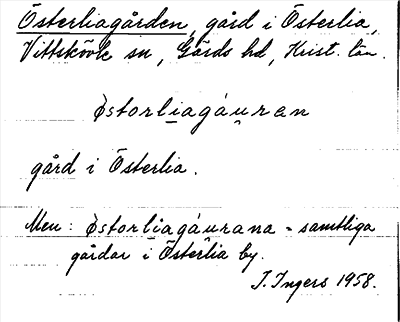 Österliagården, gård i Österlia,
Vittskövle sn, Gärds hd, Krist. län.
østorliagáuran
gård i Österlia.
Men: østorliagáurana = samtliga
gårdar i Österlia by.
I. Ingers 1958.